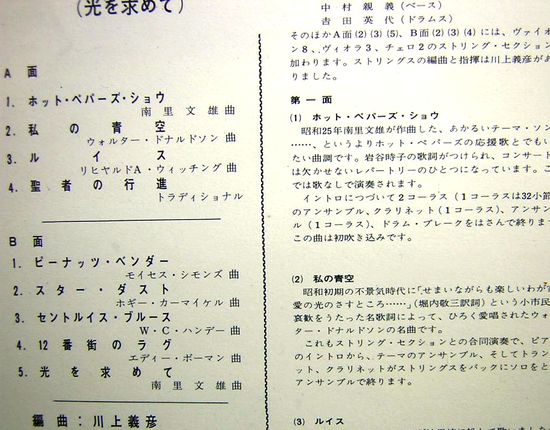 (光を求めて)
A面
1. ホット・ペパーズ・ショウ
南里文雄曲
2. 私の青空
ウォルター・ドナルドソン曲
3. ルイス
リヒヤルドA・ウィッチング曲
4. 聖者の行進
トラディショナル
B面
1. ピーナッツ・ベンダー
モイセス・シモンズ曲
2. スター・ダスト
ホギー・カーマイケル曲
3. セントルイス・ブルース
W・C・ハンデー曲
4. 12番街のラグ
エディー・ボーマン曲
5. 光を求めて
南里文雄曲
編曲:川上義彦
中村親義(ベース)
吉田英代(ドラムス)
そのほかA面(2)(3)(5)、B面(2)(3)(4)には、ヴァイオ
ン8、ヴィオラ3、チェロ2のストリング・セクション
加わります。ストリングスの編曲と指揮は川上義彦があ
りました。
第一面
(1) ホット・ペパーズ・ショウ
昭和25年南里文雄が作曲した、あかるいテーマ・ソン
……、というよりホット・ペパーズの応援歌とでもい
たい曲調です。岩谷時子の歌詞がつけられ、コンサート
は欠かせないレパートリーのひとつになっています。こ
では歌なしで演奏されます。
イントロにつづいて2コーラス(1コーラスは32小節
のアンサンブル、クラリネット(1コーラス)、アンサン
ル(1コーラス)、ドラム・ブレークをはさんで終りま
この曲は初吹き込みです。
(2) 私の青空
昭和初期の不景気時代に「せまいながらも楽しいわが
愛の光のさすところ……」(堀内敬三訳詞)という小市民
哀歓をうたった名歌詞によって、ひろく愛唱されたウォ
ター・ドナルドソンの名曲です。
これもストリング・セクションとの合同演奏で、ピア
のイントロから、テーマのアンサンブル、そしてトラン
ット、クラリネットがストリングスをバックにソロをと
アンサンブルで終ります。
(3) ルイス